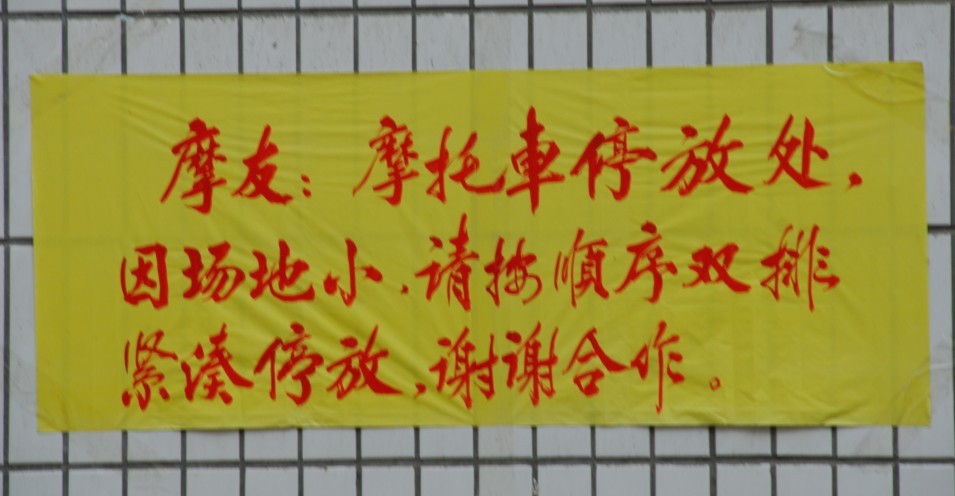 摩友：摩托車停放处，
因场地小，请按順序双排
紧湊停放，谢谢合作。